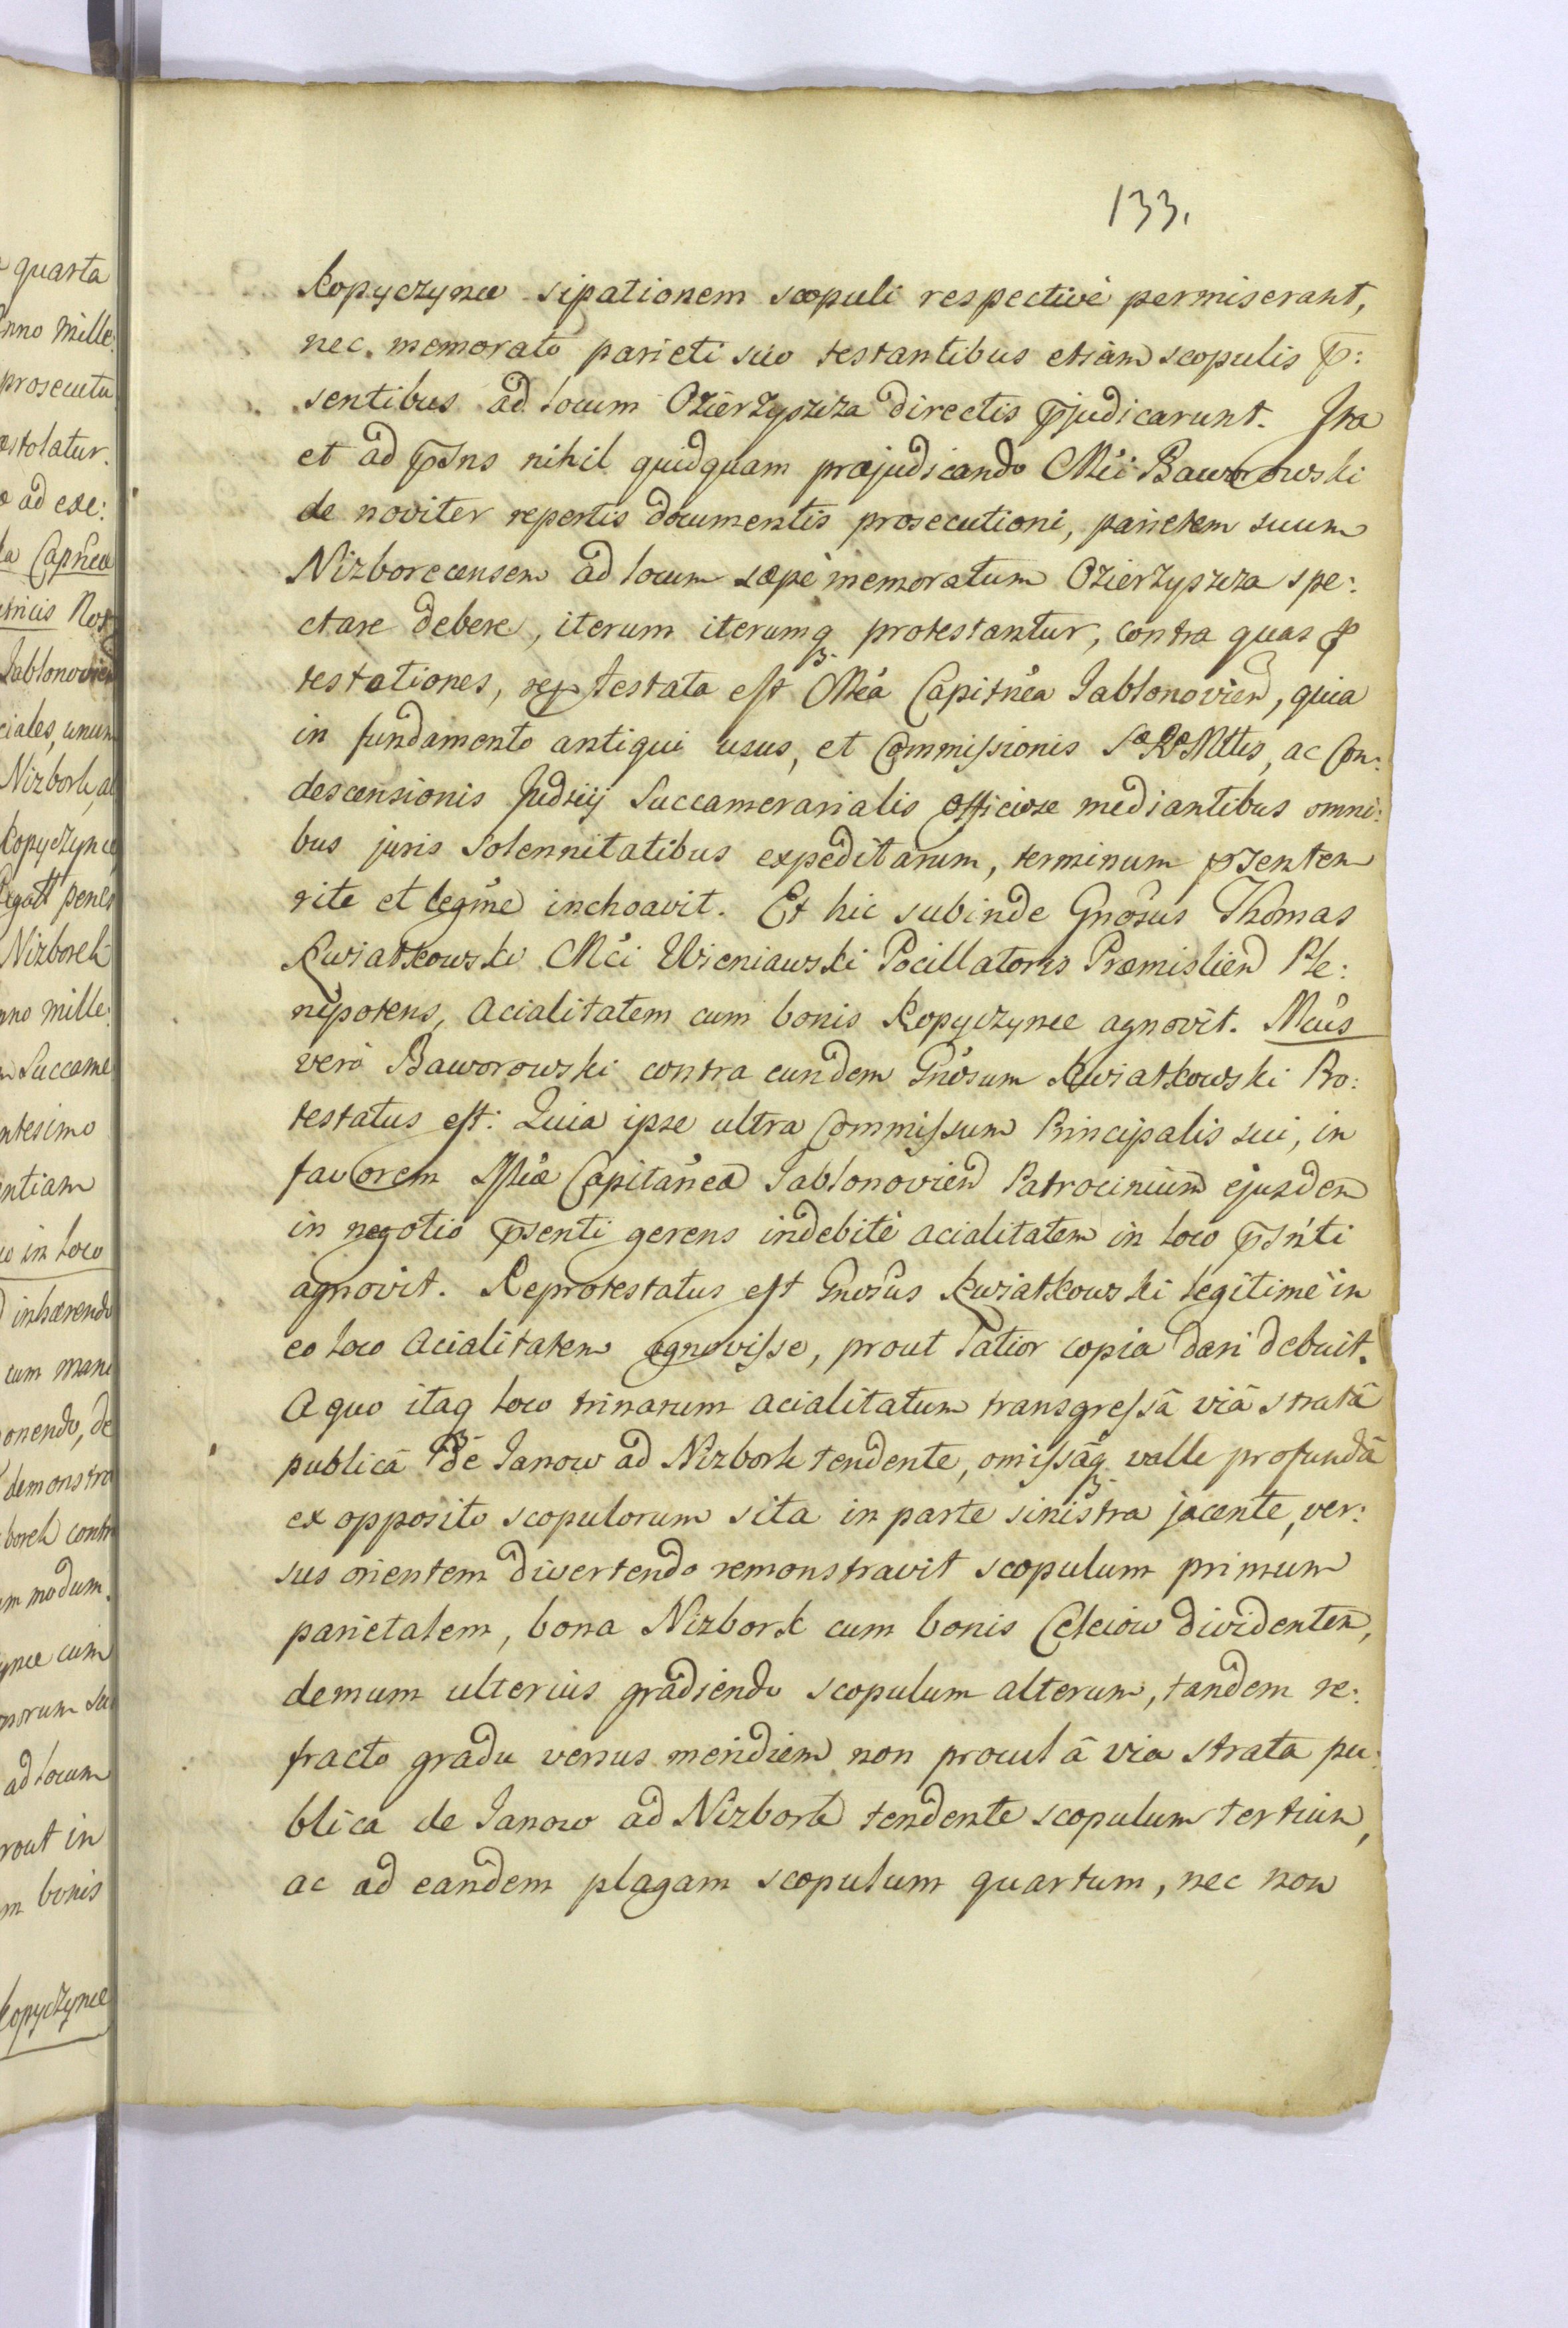 133.
Kopyczynce sipationem scopuli respectivè permiserant,
nec. memorato parieti suo testantibus etiam scopulis p̄:
sentibus ad locum Ozierzyszcza directis p̄judicarunt. Ita
et ad p̄sns nihil quidquam præjudicando Mci Baworowski
de noviter repertis documentis prosecutioni, parietem suum
Nizborecensem ad locum sæpè memoratum Ozierzyszcza spe:
ctare debere, iterum iterumq protestantur, contra quas p
testationes, rep testata est Mca Capitnea Jablonovien, quia
in fundamento antiqui usus, et Commissionis SæRæMttis, ac Con:
descensionis Judicij Succamerarialis officiose mediantibus omni:
bus juris solennitatibus expeditarum, terminum p̄sentem
rite et legme inchoavit. Et hic subinde Gnosus Thomas
Kwiatkowski Mci Wieniawski Pocillatoris Præmislien Ple:
nipotens, acialitatem cum bonis Kopyczynce agnovit. Mcus
verò Baworowski contra eundem Gnosum Kwiatkowski Pro:
testatus est: Quia ipse ultra Commissum Principalis sui, in
favorem Capitanea Jablonovien Patrocinium ejusdem
in negotio p̄senti gerens indebitè acialitatem in loco p̄snti
agnovit. Reprotestatus est Gnosus Kwiatkowski legitimè in
eo loco acialitatem agnovisse, prout latior copia dari debuit.
A quo itaq loco trinarum acialitatum transgressâ viâ stratâ
publicâ de Janow ad Nizbork tendente, omissâq valle profundâ
ex opposito scopulorum sita in parte sinistra jacente, ver:
sus orientem divertendo remonstravit scopulum primum
parietalem, bona Nizbork cum bonis Celeiow dividentem,
demum ulterius gradiendo scopulum alterum, tandem re:
fracto gradu versus meridiem non procul â via strata pu:
blica de Janow ad Nizbork tendente scopulum tertium,
ac ad eandem plagam scopulum quartum, nec non